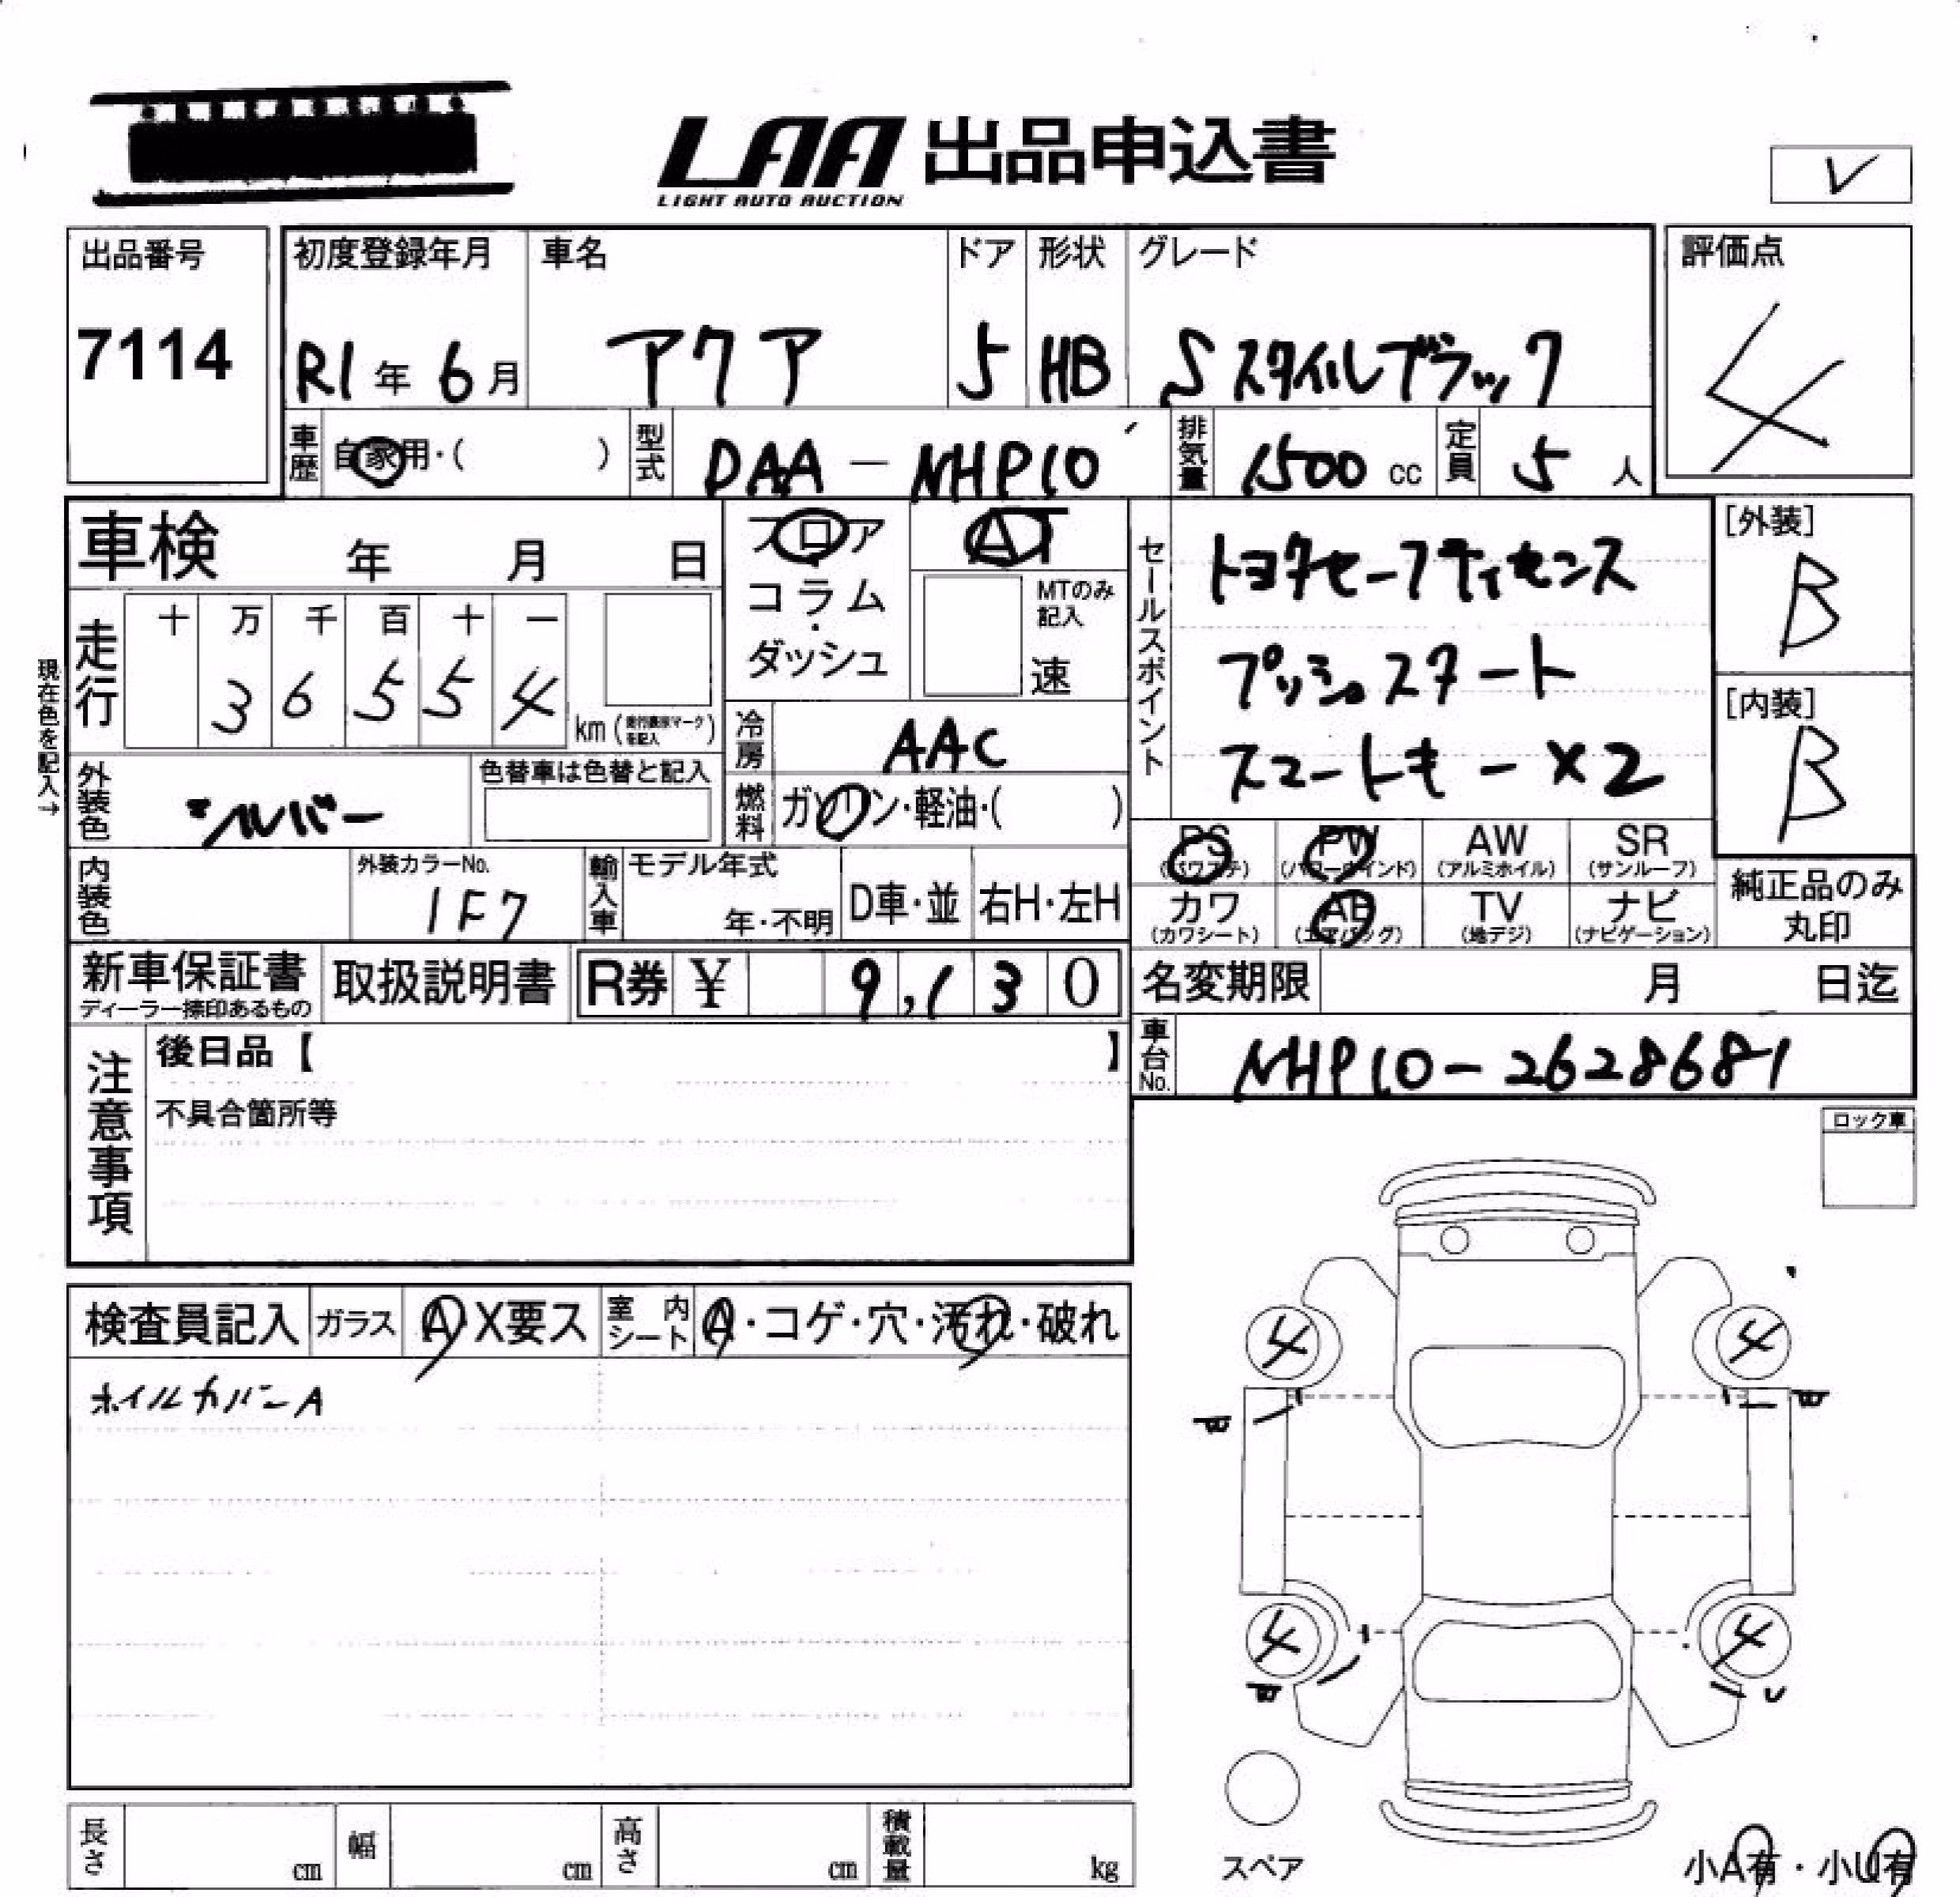 LAA 出品申込書
LIGHT AUTO AUCTION
出品番号 初度登録年月 車名 ドア 形状 グレード 評価点
7114 R1年6月 アクア 5 HB Sスタイルブラック 4
車歴 自家用・( ) 型式 DAA-NHP10 排気量 1500cc 定員 5人
車検 年 月 日
フロア・コラム・ダッシュ
AT
MTのみ記入
速
セールスポイント
トヨタセーフティセンス
プッシュスタート
スマートキーX2
[外装]
B
[内装]
B
現在色を記入→
走行 十 万 千 百 十 一
3 6 5 5 4 km
冷房 AAC
外装色 シルバー 色替車は色替と記入
燃料 ガソリン・軽油・( )
PS (パワステ) PW (パワーウインド) AW (アルミホイル) SR (サンルーフ)
カワ (カワシート) AB (エアバッグ) TV (地デジ) ナビ (ナビゲーション)
純正品のみ丸印
内装色 外装カラーNo. 1F7 輸入車 モデル年式 年・不明 D車・並 右H・左H
新車保証書 取扱説明書 R券 ¥ 9,130
名変期限 月 日迄
車台No. NHP10-2628681
注意事項
後日品【 】
不具合箇所等
ロック車
検査員記入 ガラス A X要ス 室内シート A・コゲ・穴・汚れ・破れ
ホイルカバーA
4 4
4 4
スペア
長さ cm 幅 cm 高さ cm 積載量 kg
小A有・小U有